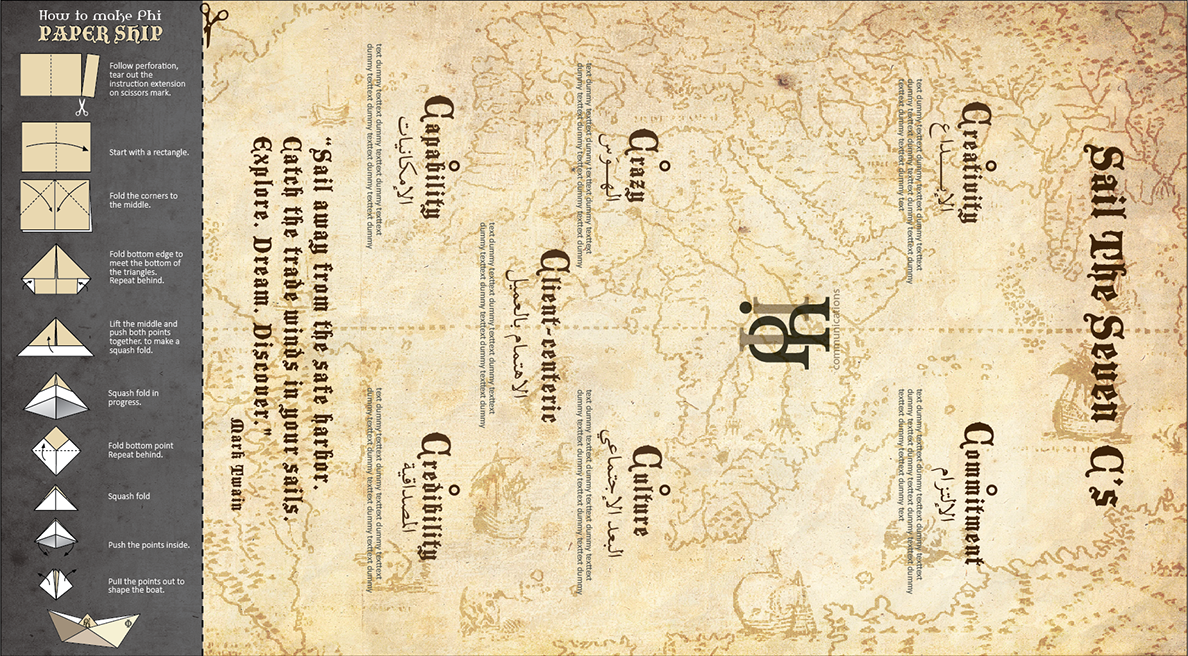 How to make Phi
PAPER SHIP
Follow perforation,
tear out the
instruction extension
on scissors mark.
Start with a rectangle.
Fold the corners to
the middle.
Fold bottom edge to
meet the bottom of
the triangles.
Repeat behind.
Lift the middle and
push both points
together. to make a
squash fold.
Squash fold in
progress.
Fold bottom point
Repeat behind.
Squash fold
Push the points inside.
Pull the points out to
shape the boat.
Sail The Seven C's
Creativity
الإبـــداع
text dummy texttext dummy texttext dummy texttext
dummy texttext dummy texttext dummy texttext dummy
texttext dummy texttext dummy text
Commitment
الإلتزام
text dummy texttext dummy texttext dummy texttext
dummy texttext dummy texttext dummy texttext dummy
texttext dummy texttext dummy text
phi
communications
Crazy
الهـــوَس
text dummy texttext dummy texttext dummy texttext
dummy texttext dummy texttext dummy texttext dummy
Culture
البعد الإجتماعي
text dummy texttext dummy texttext dummy texttext
dummy texttext dummy texttext dummy texttext dummy
Client-centeric
الاهتمام بالعميل
text dummy texttext dummy texttext dummy texttext
dummy texttext dummy texttext dummy texttext dummy
Capability
الإمكانيات
text dummy texttext dummy texttext dummy texttext
dummy texttext dummy texttext dummy texttext dummy
Credibility
المصداقية
text dummy texttext dummy texttext dummy texttext
dummy texttext dummy texttext dummy texttext dummy
"Sail away from the safe harbor.
Catch the trade winds in your sails.
Explore. Dream. Discover."
Mark Twain